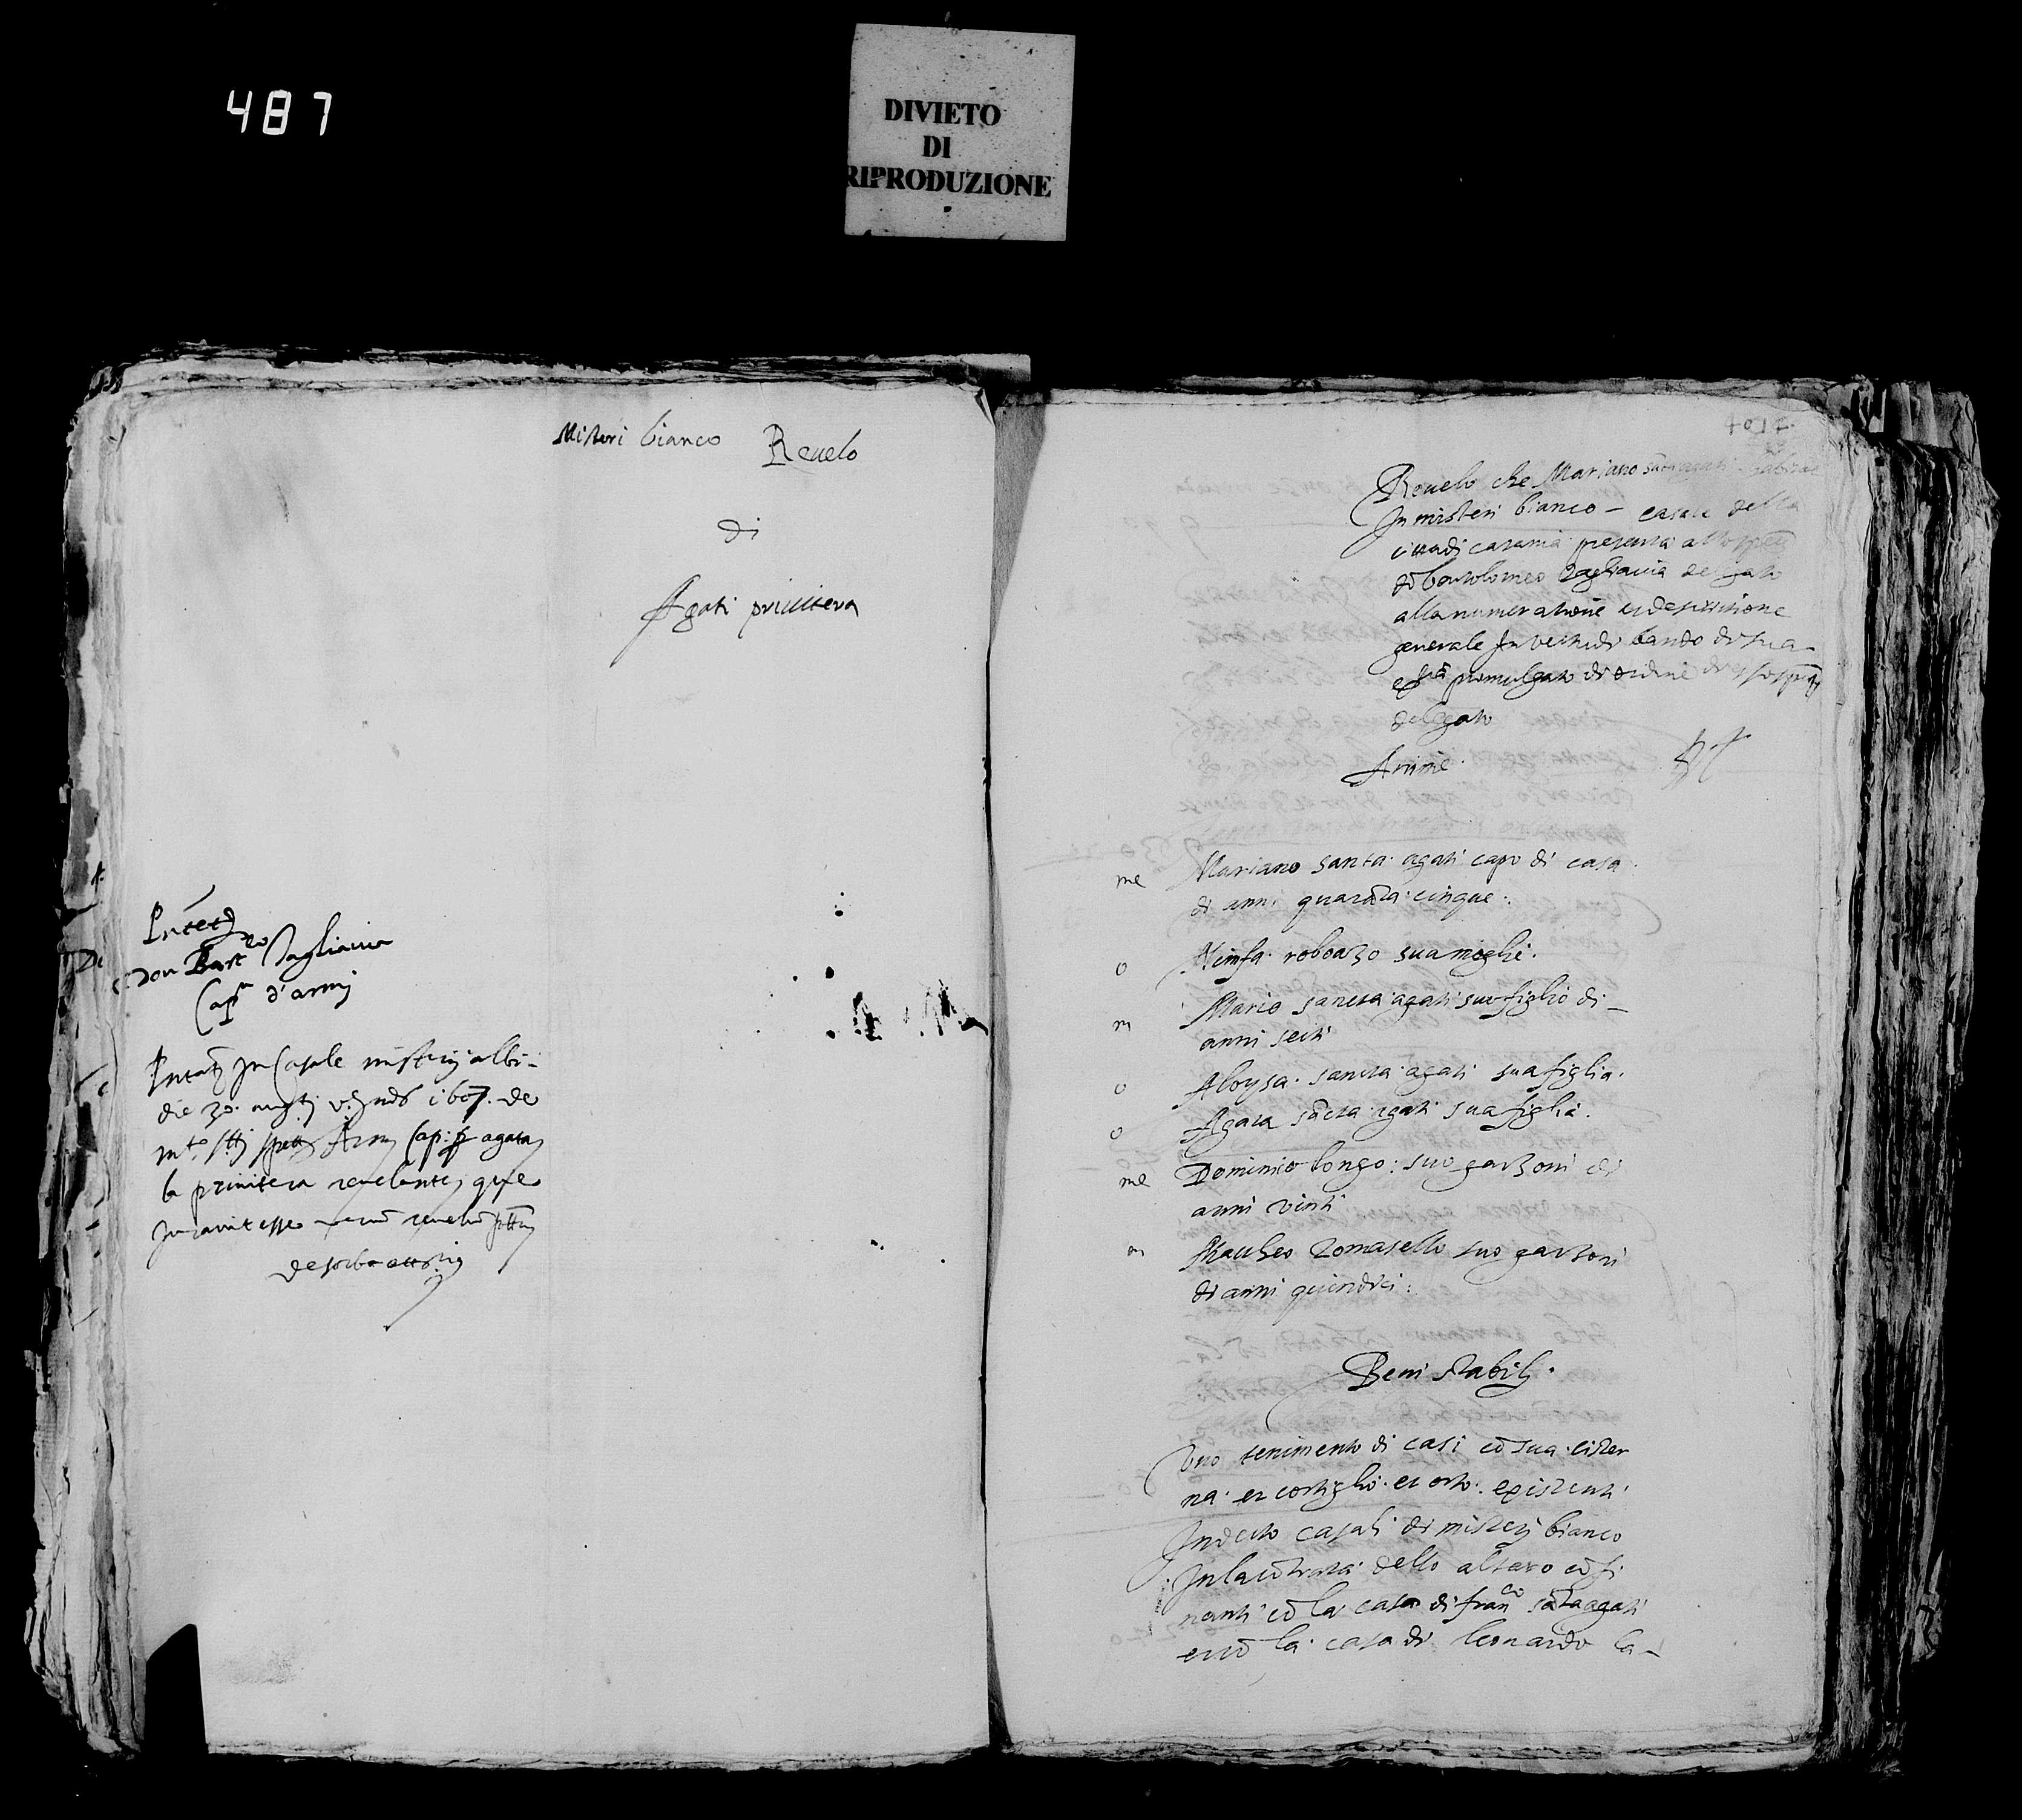 487
DIVIETO
DI
RIPRODUZIONE
Misteri bianco Revelo
di
Agati privitera
don Bart.eo Tagliavia
Cap.n d'armi
In Casale misterij albi
die 30. augti 1607. de
Cap. agata
la privitera revelante que
juravit esse
Revelo che Mariano santa agati habitat
In misteri bianco – casale della
citta di catania presenta allo
don bartolomeo Tagliavia delegato
alla numeratione et descritione
generale In virtu di bando di sua
promulgato di ordine di
delegato
Anime
me Mariano santa agati capo di casa
di anni quaranta cinque
o Nimfa roboazo sua moglie
m Mario sancta agati suo figlio di
anni setti
o Aloysa sancta agati sua figlia
o Agata sancta agati sua figlia
me Dominico longo suo garzoni di
anni vinti
m Mattheo Tomasello suo garzoni
di anni quindici
Beni stabili
Uno tenimento di casi co sua cister
na et cortiglio et orto existenti
In detto casali di misterj bianco
In la cotrata dello altaro cofi
nanti co la casa di franco sata agati
et co la casa di leonardo la